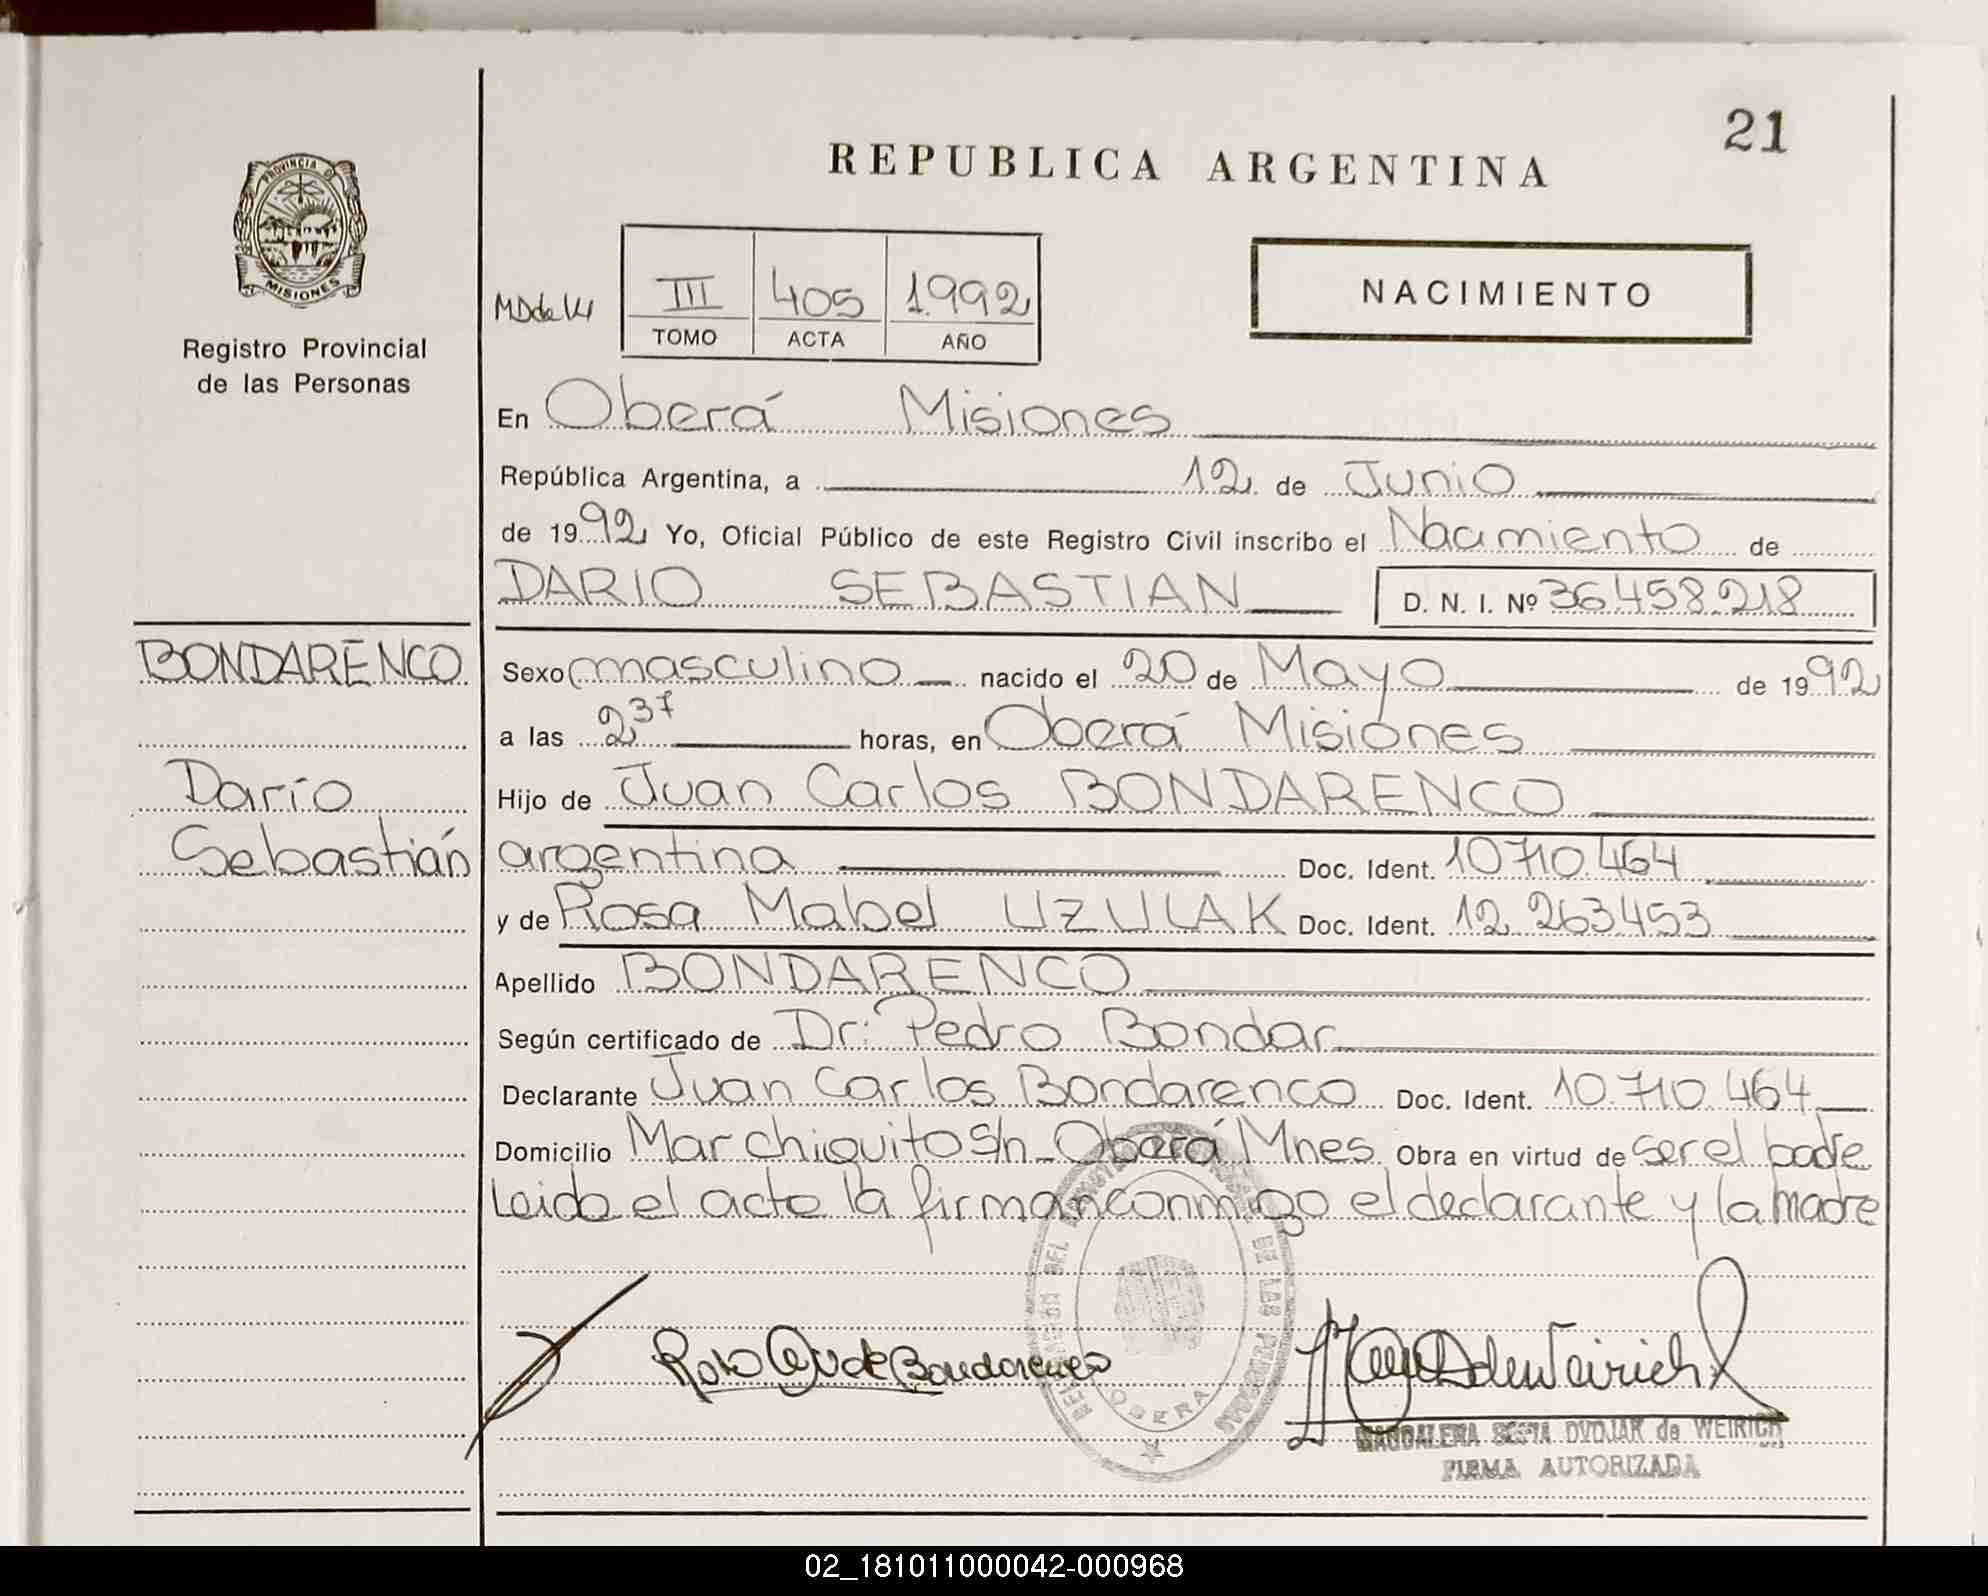 21
REPUBLICA ARGENTINA
PROVINCIA DE
MISIONES
Registro Provincial
de las Personas
MDdeW
III 405 1.992
TOMO ACTA AÑO
NACIMIENTO
En Oberá Misiones
República Argentina, a 12 de Junio
de 1992 Yo, Oficial Público de este Registro Civil inscribo el Nacimiento de
DARIO SEBASTIAN D. N. I. Nº 36458.218
BONDARENCO
Darío
Sebastián
Sexo masculino nacido el 20 de Mayo de 1992
a las 2 37 horas, en Oberá Misiones
Hijo de Juan Carlos BONDARENCO
argentina Doc. Ident. 10710.464
y de Rosa Mabel UZULAK Doc. Ident. 12.263.453
Apellido BONDARENCO
Según certificado de Dr: Pedro Bondar
Declarante Juan Carlos Bondarenco Doc. Ident. 10.710.464
Domicilio Mar chiquito s/n - Oberá Mnes. Obra en virtud de ser el padre
Leida el acta la firman conmigo el declarante y la madre
DE LAS PERSONAS
OBERA
MAGDALENA SOFIA DVOJAK de WEIRICH
FIRMA AUTORIZADA
02_181011000042-000968